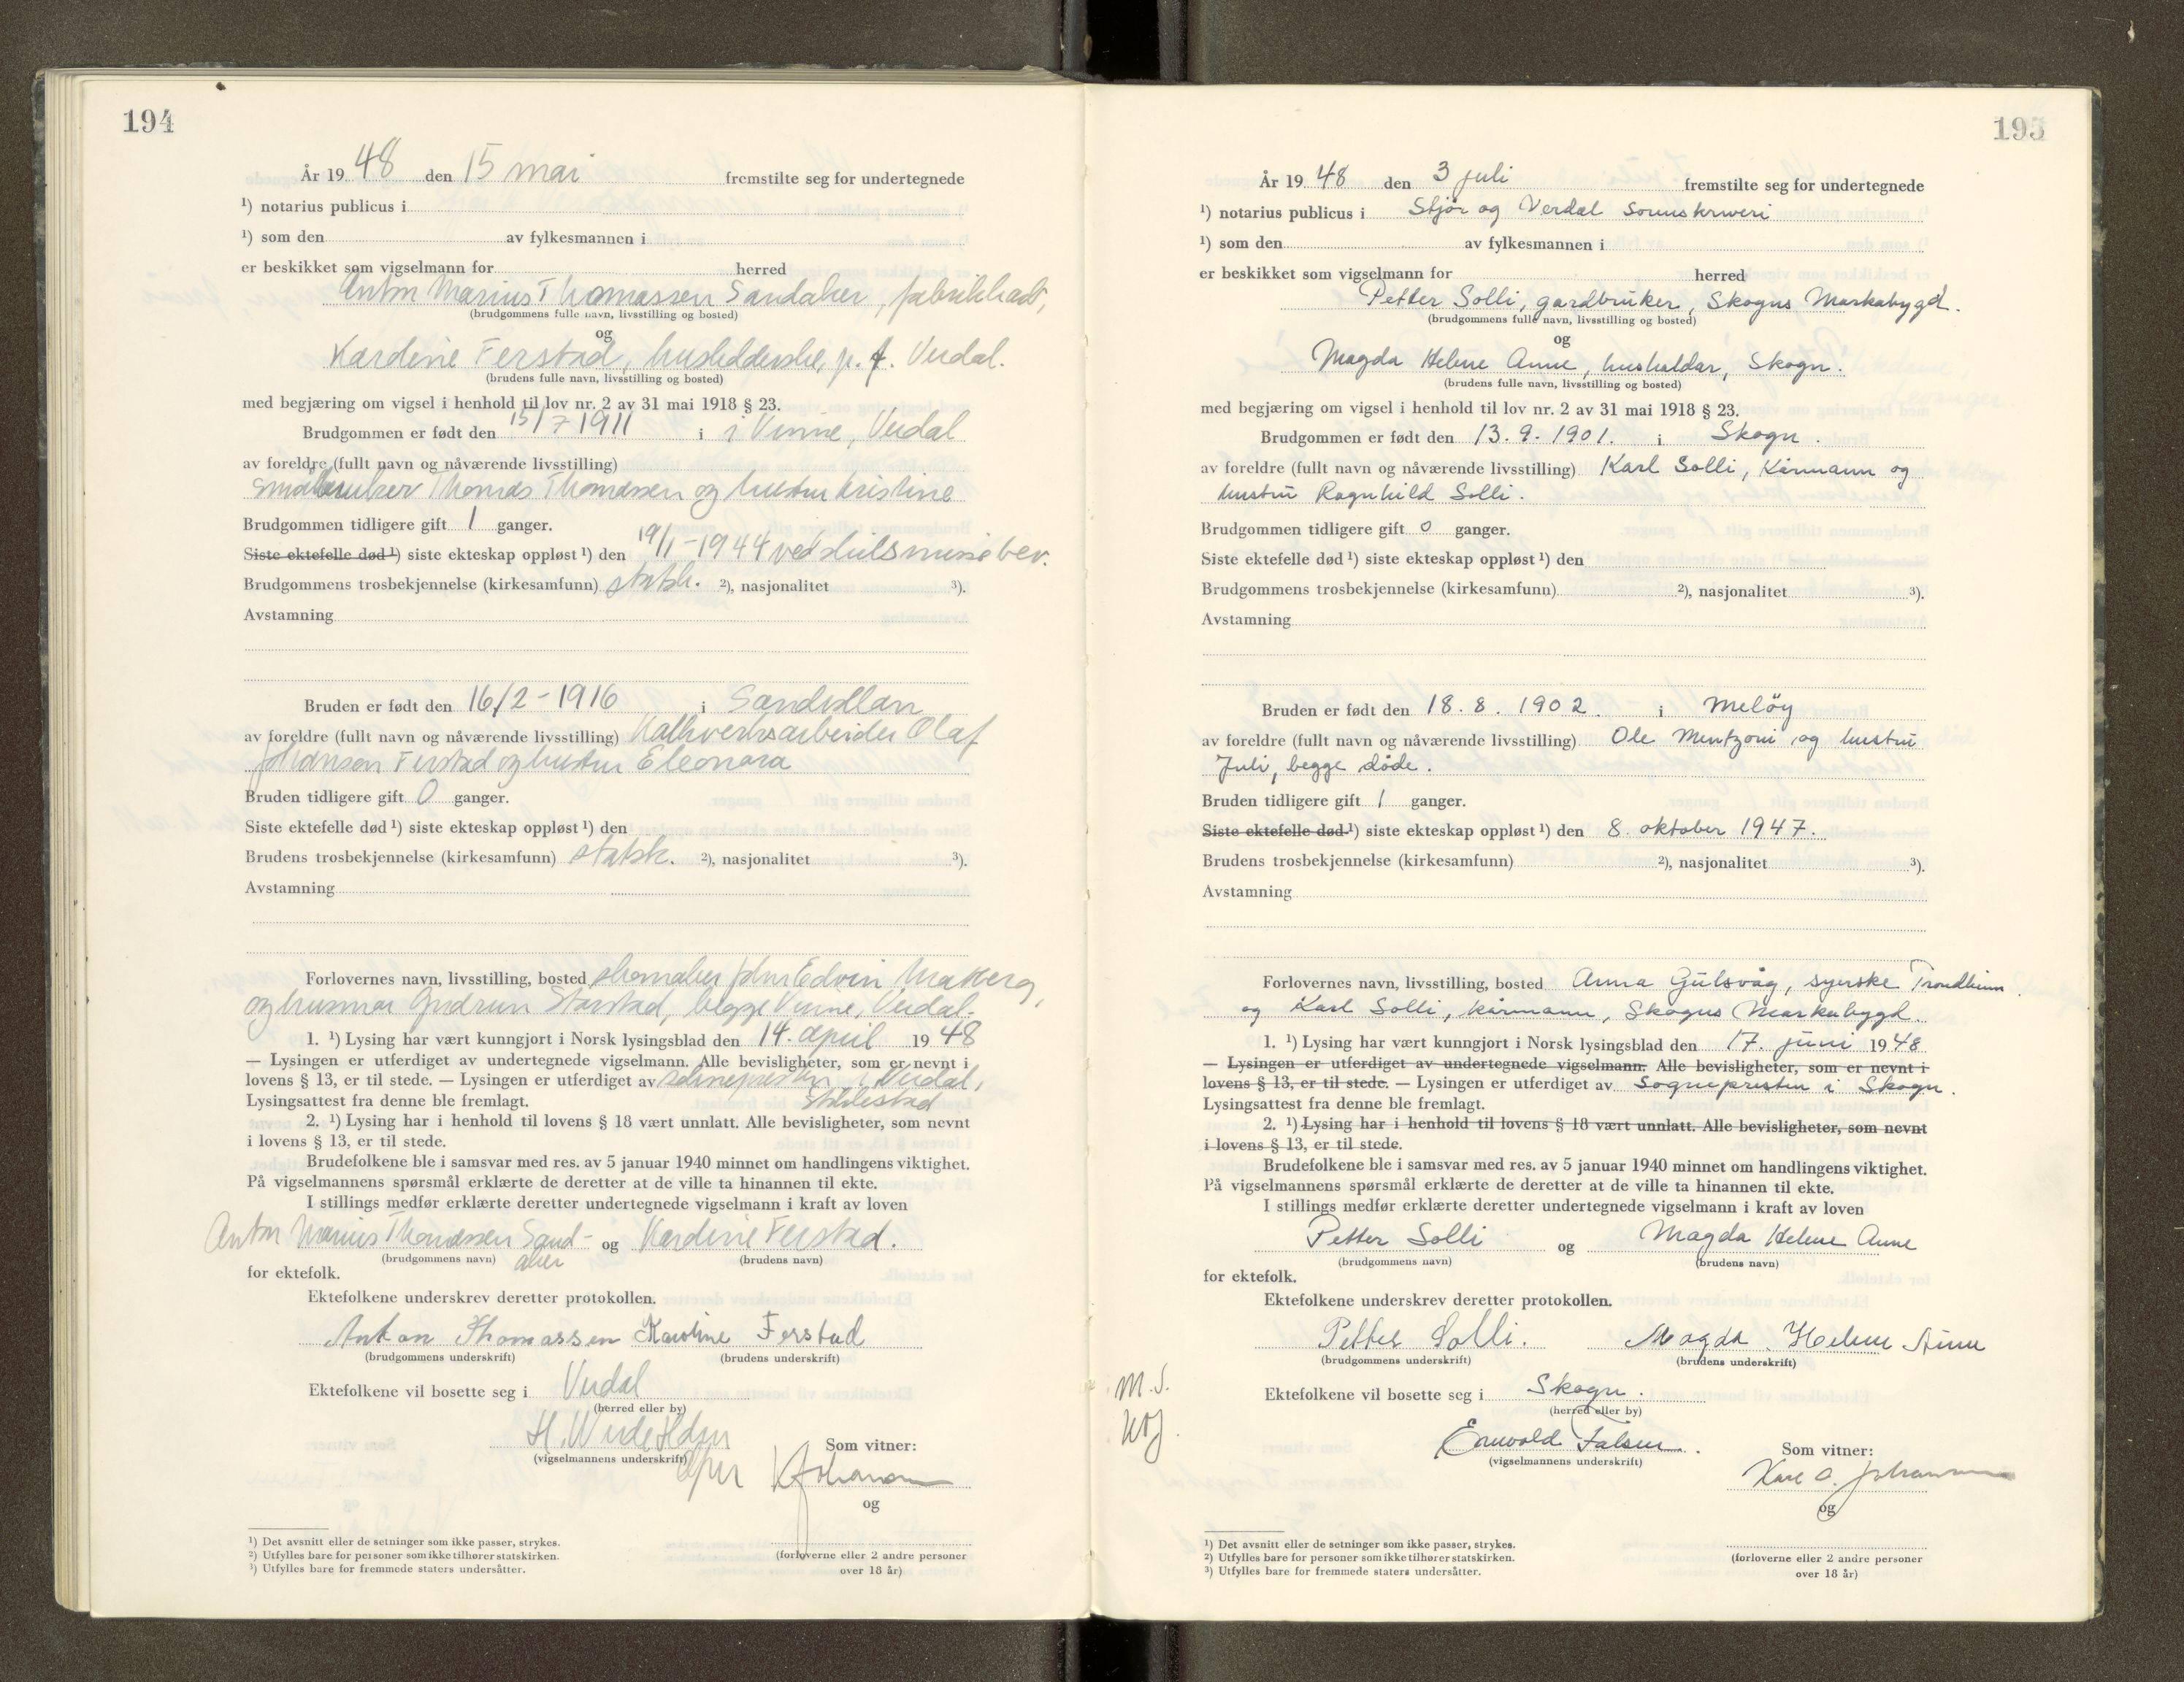 194
År 19 48 den 15 mai fremstilte seg for undertegnede
¹) notarius publicus i
¹) som den av fylkesmannen i
er beskikket som vigselmann for herred
Anton Marius Thomassen Sandaker,
(brudgommens fulle navn, livsstilling og bosted)
og
Kardine Ferstad, p. t. Verdal.
(brudens fulle navn, livsstilling og bosted)
med begjæring om vigsel i henhold til lov nr. 2 av 31 mai 1918 § 23.
Brudgommen er født den 15/7 1911 i i Vinne, Verdal
av foreldre (fullt navn og nåværende livsstilling)
småbruker Thomas Thomassen og hustru Kristine
Brudgommen tidligere gift 1 ganger.
Siste ektefelle død ¹) siste ekteskap oppløst ¹) den 19/1-1944 ved bev.
Brudgommens trosbekjennelse (kirkesamfunn) statsk. ²), nasjonalitet ³).
Avstamning
Bruden er født den 16/2-1916 i Sandvollan
av foreldre (fullt navn og nåværende livsstilling) Kalkverksarbeider Olaf
Johansen Ferstad og hustru Eleonora
Bruden tidligere gift 0 ganger.
Siste ektefelle død ¹) siste ekteskap oppløst ¹) den
Brudens trosbekjennelse (kirkesamfunn) statsk. ²), nasjonalitet ³).
Avstamning
Forlovernes navn, livsstilling, bosted skomaker John Edvin
og husmor Gudrun begge Vinne, Verdal.
1. ¹) Lysing har vært kunngjort i Norsk lysingsblad den 14. april 19 48
— Lysingen er utferdiget av undertegnede vigselmann. Alle bevisligheter, som er nevnt i
lovens § 13, er til stede. — Lysingen er utferdiget av soknepresten i Verdal,
Lysingsattest fra denne ble fremlagt. Stiklestad
2. ¹) Lysing har i henhold til lovens § 18 vært unnlatt. Alle bevisligheter, som nevnt
i lovens § 13, er til stede.
Brudefolkene ble i samsvar med res. av 5 januar 1940 minnet om handlingens viktighet.
På vigselmannens spørsmål erklærte de deretter at de ville ta hinannen til ekte.
I stillings medfør erklærte deretter undertegnede vigselmann i kraft av loven
Anton Marius Thomassen Sand- og Kardine Ferstad.
(brudgommens navn) aker (brudens navn)
for ektefolk.
Ektefolkene underskrev deretter protokollen.
Anton Thomassen Karoline Ferstad
(brudgommens underskrift) (brudens underskrift)
Ektefolkene vil bosette seg i Verdal
(herred eller by)
(vigselmannens underskrift)
Som vitner:
og
(forloverne eller 2 andre personer
over 18 år)
¹) Det avsnitt eller de setninger som ikke passer, strykes.
²) Utfylles bare for personer som ikke tilhører statskirken.
³) Utfylles bare for fremmede staters undersåtter.
195
År 19 48 den 3 juli fremstilte seg for undertegnede
¹) notarius publicus i Stjør og Verdal sorenskriveri
¹) som den av fylkesmannen i
er beskikket som vigselmann for herred
Petter Solli, gardbruker, Skogns Markabygd.
(brudgommens fulle navn, livsstilling og bosted)
og
Magda Helene Anne, husholdar, Skogn.
(brudens fulle navn, livsstilling og bosted)
med begjæring om vigsel i henhold til lov nr. 2 av 31 mai 1918 § 23.
Brudgommen er født den 13.9.1901. i Skogn.
av foreldre (fullt navn og nåværende livsstilling) Karl Solli, kårmann og
hustru Ragnhild Solli.
Brudgommen tidligere gift 0 ganger.
Siste ektefelle død ¹) siste ekteskap oppløst ¹) den
Brudgommens trosbekjennelse (kirkesamfunn) ²), nasjonalitet ³).
Avstamning
Bruden er født den 18.8.1902. i Meløy
av foreldre (fullt navn og nåværende livsstilling) Ole Mentzoni og hustru
Juli, begge døde.
Bruden tidligere gift 1 ganger.
Siste ektefelle død ¹) siste ekteskap oppløst ¹) den 8. oktober 1947.
Brudens trosbekjennelse (kirkesamfunn) ²), nasjonalitet ³).
Avstamning
Forlovernes navn, livsstilling, bosted Anna Gulsvåg, syerske Trondheim
og Karl Solli, kårmann, Skogns Markabygd.
1. ¹) Lysing har vært kunngjort i Norsk lysingsblad den 17. juni 19 48
— Lysingen er utferdiget av undertegnede vigselmann. Alle bevisligheter, som er nevnt i
lovens § 13, er til stede. — Lysingen er utferdiget av Sognepresten i Skogn.
Lysingsattest fra denne ble fremlagt.
2. ¹) Lysing har i henhold til lovens § 18 vært unnlatt. Alle bevisligheter, som nevnt
i lovens § 13, er til stede.
Brudefolkene ble i samsvar med res. av 5 januar 1940 minnet om handlingens viktighet.
På vigselmannens spørsmål erklærte de deretter at de ville ta hinannen til ekte.
I stillings medfør erklærte deretter undertegnede vigselmann i kraft av loven
Petter Solli og Magda Helene Anne
(brudgommens navn) (brudens navn)
for ektefolk.
Ektefolkene underskrev deretter protokollen.
Petter Solli. Magda Helene Anne
(brudgommens underskrift) (brudens underskrift)
M.S.
Ektefolkene vil bosette seg i Skogn.
(herred eller by)
Falsen.
(vigselmannens underskrift)
Som vitner:
Kåre O. Johansen
og
(forloverne eller 2 andre personer
over 18 år)
¹) Det avsnitt eller de setninger som ikke passer, strykes.
²) Utfylles bare for personer som ikke tilhører statskirken.
³) Utfylles bare for fremmede staters undersåtter.